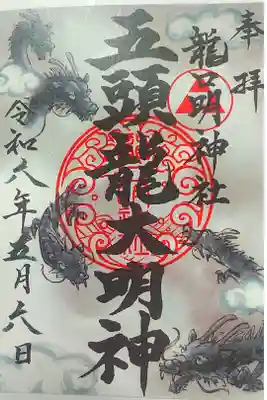 奉拝
龍口明神社
五頭龍大明神
令和八年五月六日